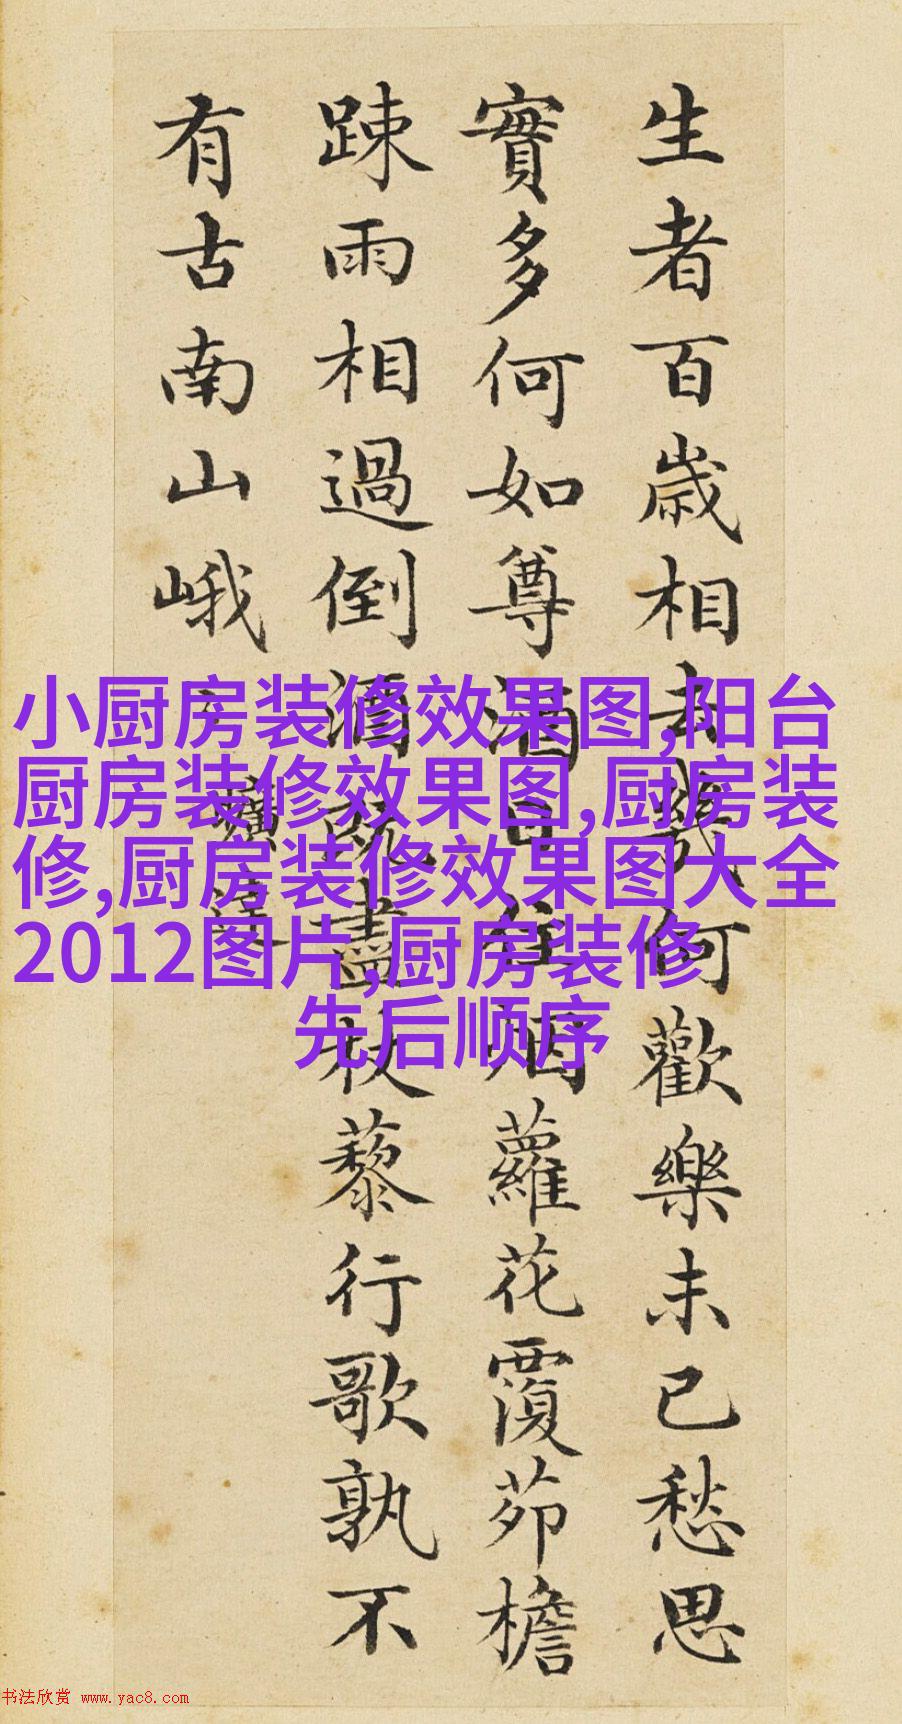 生者百歳相去幾何歡樂未已愁思
實多何如尊酒日往烟蘿花覆茆檐
踈雨相過倒酒既盡杖藜行歌孰不
有古南山峨
小厨房装修效果图,阳台
厨房装修效果图,厨房装
修,厨房装修效果图大全
2012图片,厨房装修
先后顺序
书法欣赏 www.yac8.com